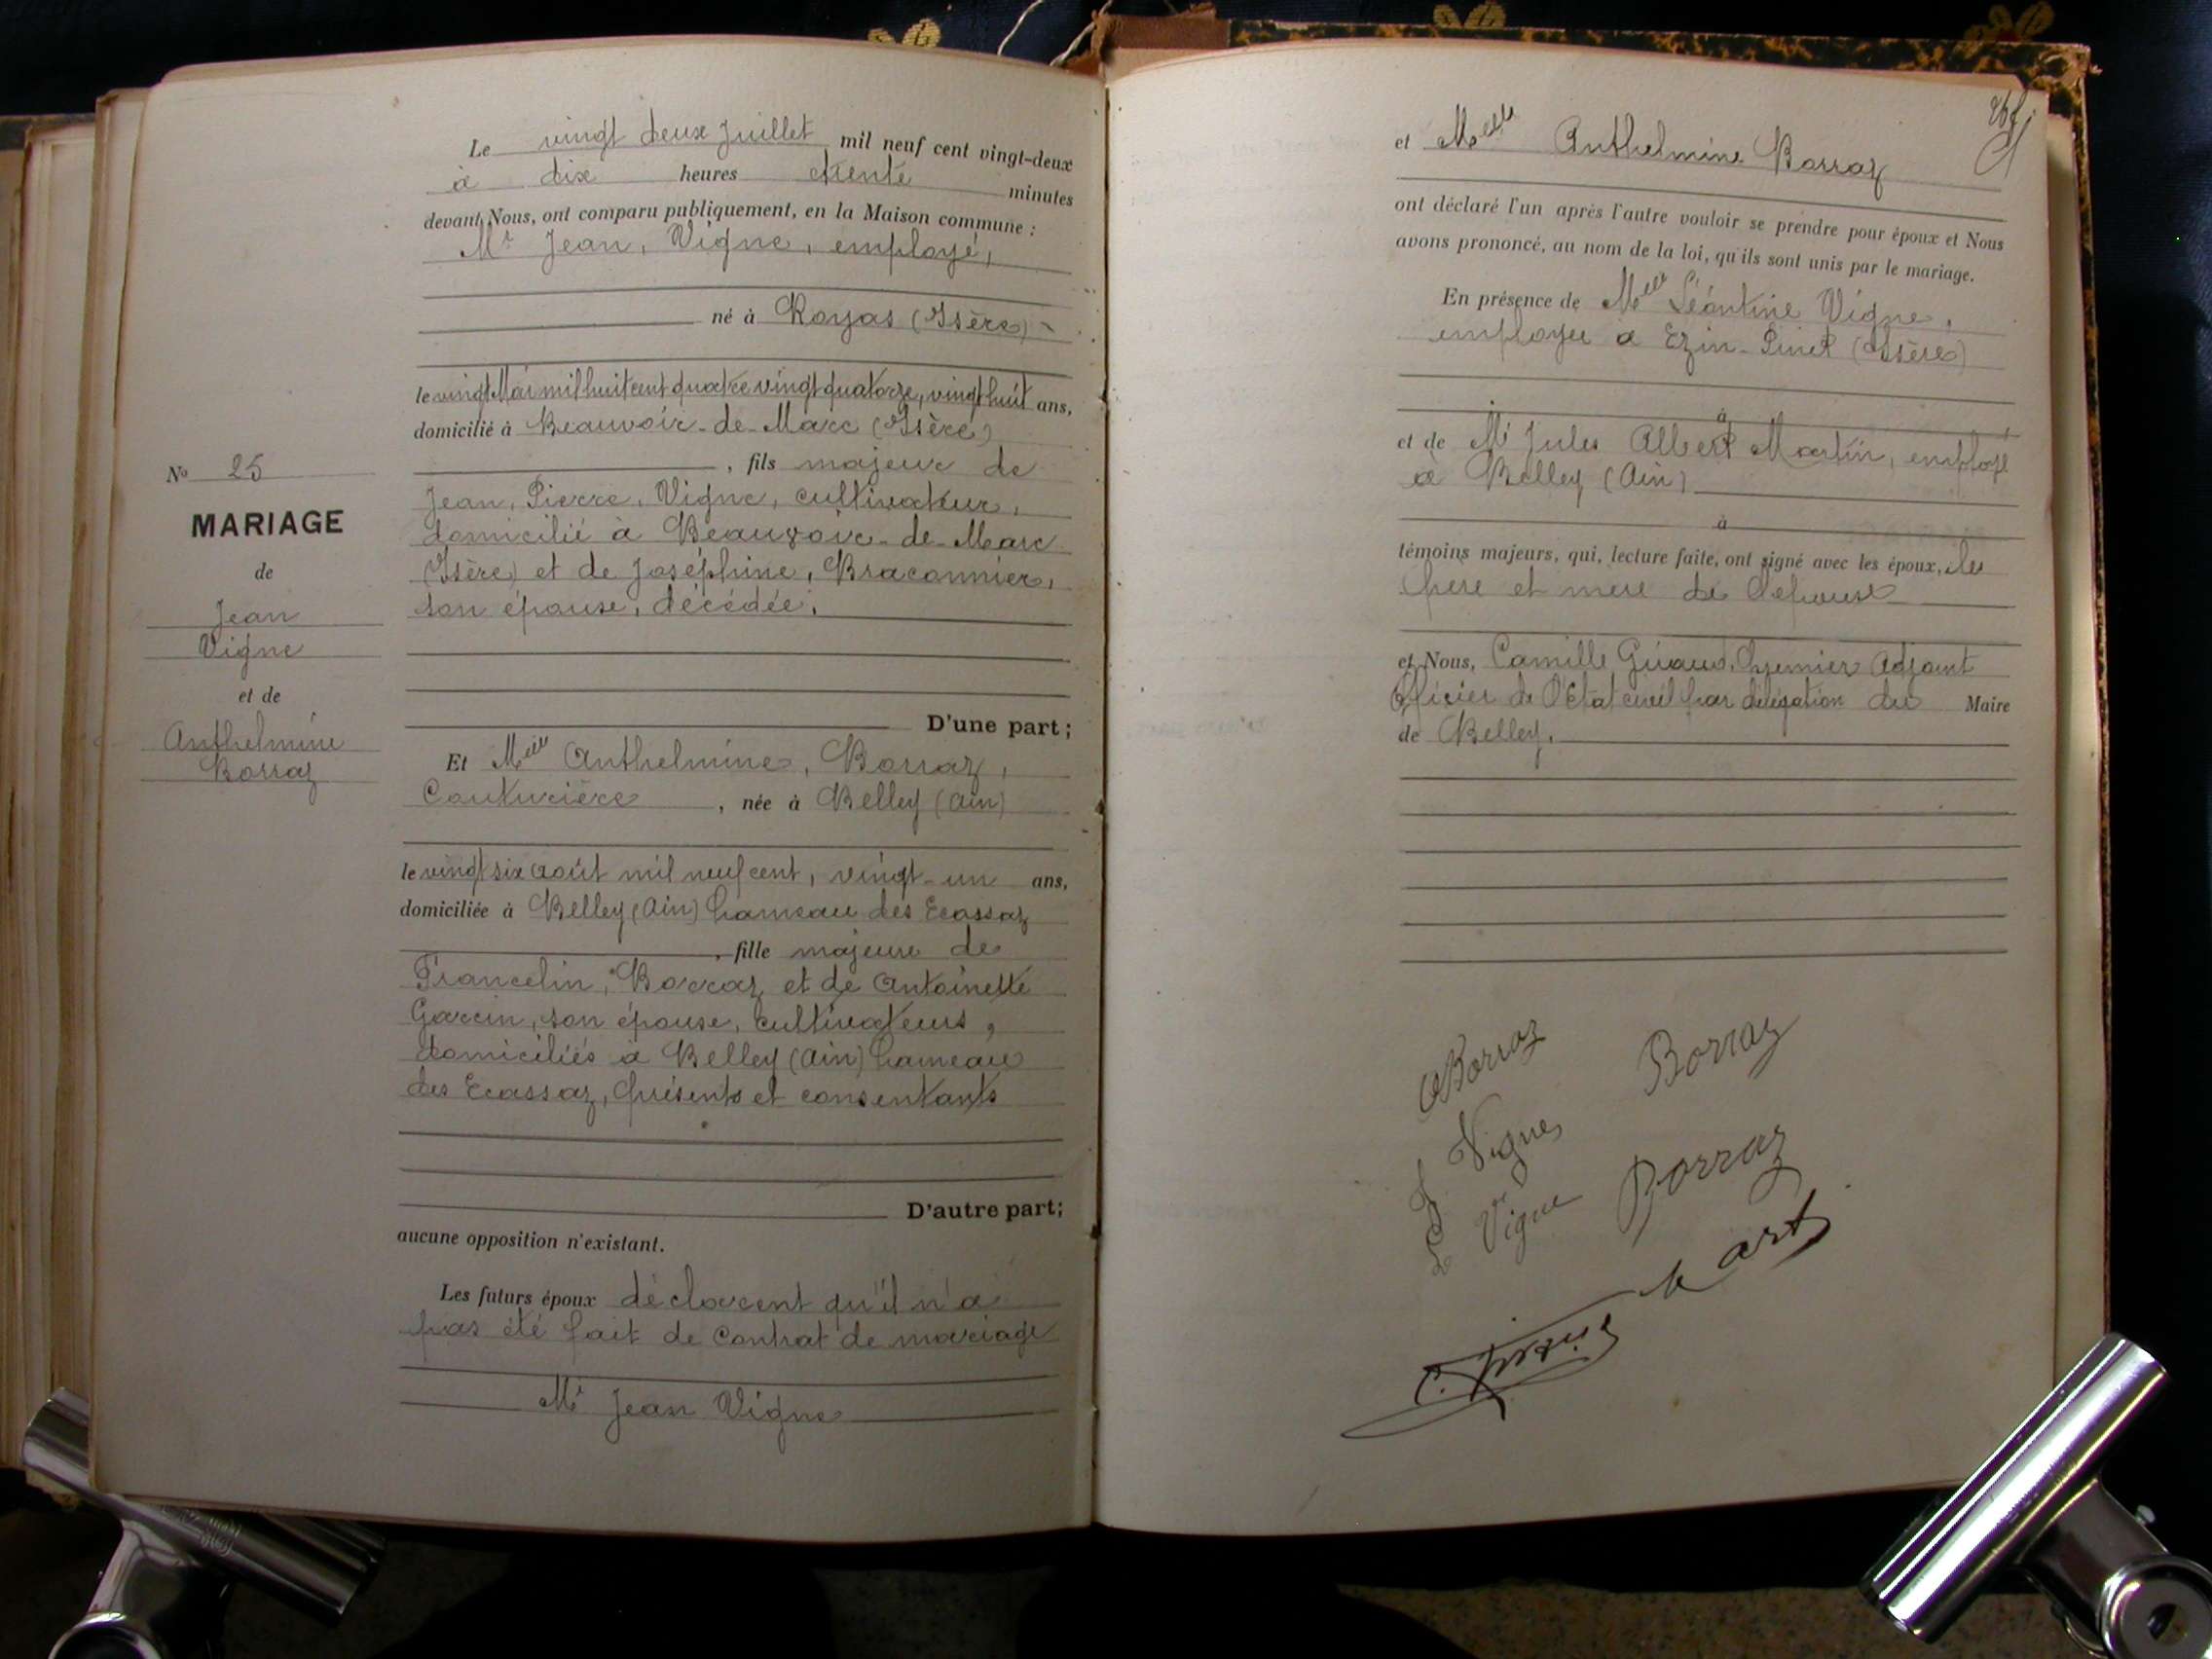 Le vingt deux Juillet mil neuf cent vingt-deux
à dix heures trente minutes
devant Nous, ont comparu publiquement, en la Maison commune :
Mr Jean, Vigne, employé,
né à Royas (Isère)
le vingt Mai mil huit cent quatre vingt quatorze, vingt huit ans,
domicilié à Beauvoir-de-Marc (Isère)
, fils majeur de
Jean, Pierre, Vigne, cultivateur,
domicilié à Beauvoir-de-Marc
(Isère) et de Joséphine, Braconnier,
son épouse, décédée,
D'une part ;
Et Melle Anthelmine, Borraz,
Couturière, née à Belley (Ain)
le vingt six août mil neuf cent, vingt-un ans,
domiciliée à Belley (Ain) hameau des Ecassaz
, fille majeure de
Francelin, Borraz et de Antoinette
Garcin, son épouse, cultivateurs,
domiciliés à Belley (Ain) hameau
des Ecassaz, présents et consentants
D'autre part ;
aucune opposition n'existant.
Les futurs époux déclarent qu'il n'a
pas été fait de contrat de mariage
Mr Jean Vigne
No 25
MARIAGE
de
Jean
Vigne
et de
Anthelmine
Borraz
et Melle Anthelmine Borraz
ont déclaré l'un après l'autre vouloir se prendre pour époux et Nous
avons prononcé, au nom de la loi, qu'ils sont unis par le mariage.
En présence de Melle Léontine Vigne,
employée à Ezin-Pinet (Isère)
à
et de Mr Jules Albert Martin, employé
à Belley (Ain)
à
témoins majeurs, qui, lecture faite, ont signé avec les époux, les
père et mère de l'épouse
et Nous, Camille Giraud, premier Adjoint
Officier de l'Etat civil par délégation du Maire
de Belley.
A Borraz
Borraz
J Vigne
Borraz
L Vigne